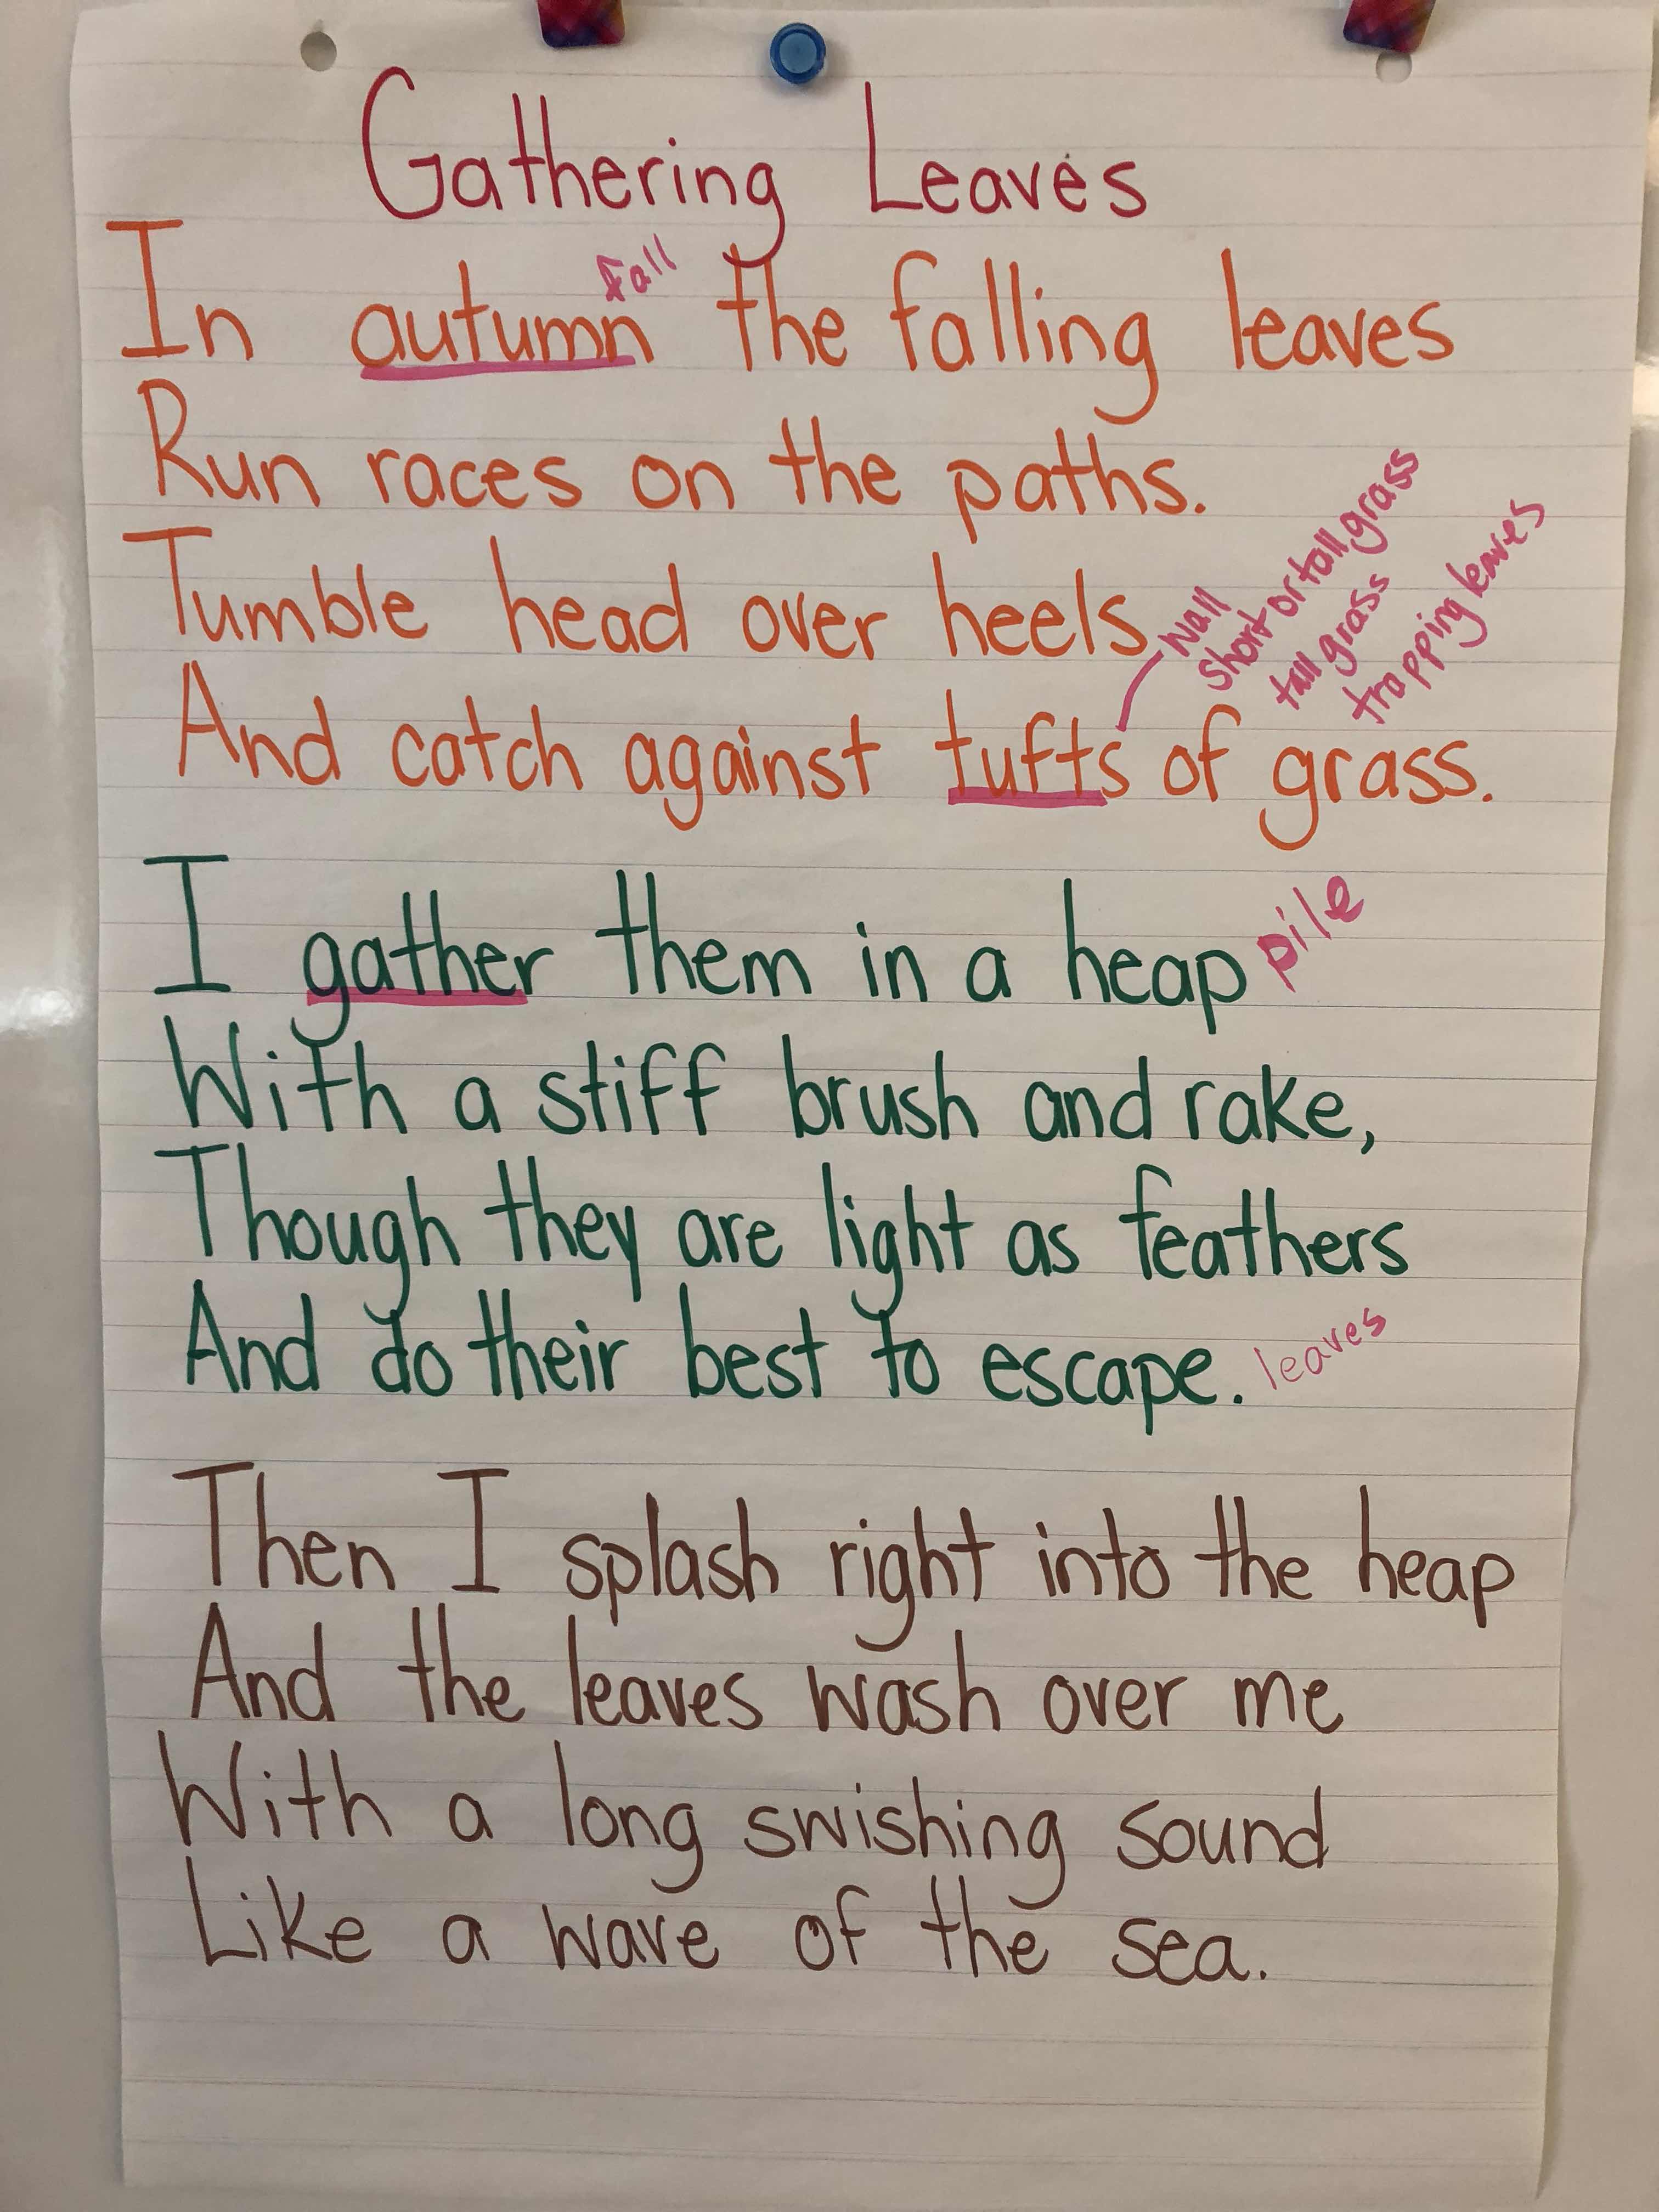 Gathering Leaves
fall
In autumn the falling leaves
Run races on the paths.
Tumble head over heels
wall
short or tall grass
tall grass
trapping leaves
And catch against tufts of grass.
I gather them in a heap pile
With a stiff brush and rake,
Though they are light as feathers
And do their best to escape. leaves
Then I splash right into the heap
And the leaves wash over me
With a long swishing sound
Like a wave of the sea.